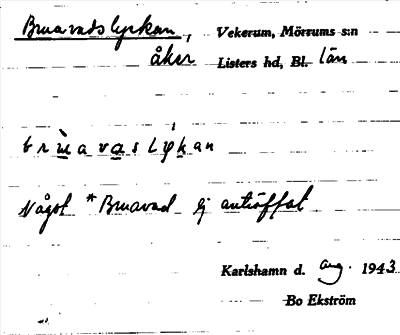 Bruavadslyckan, Vekerum, Mörrums s:n
åker Listers hd, Bl. län
brùavaslýkan
Något *Bruavad ej anträffat
Karlshamn d. aug. 1943
Bo Ekström